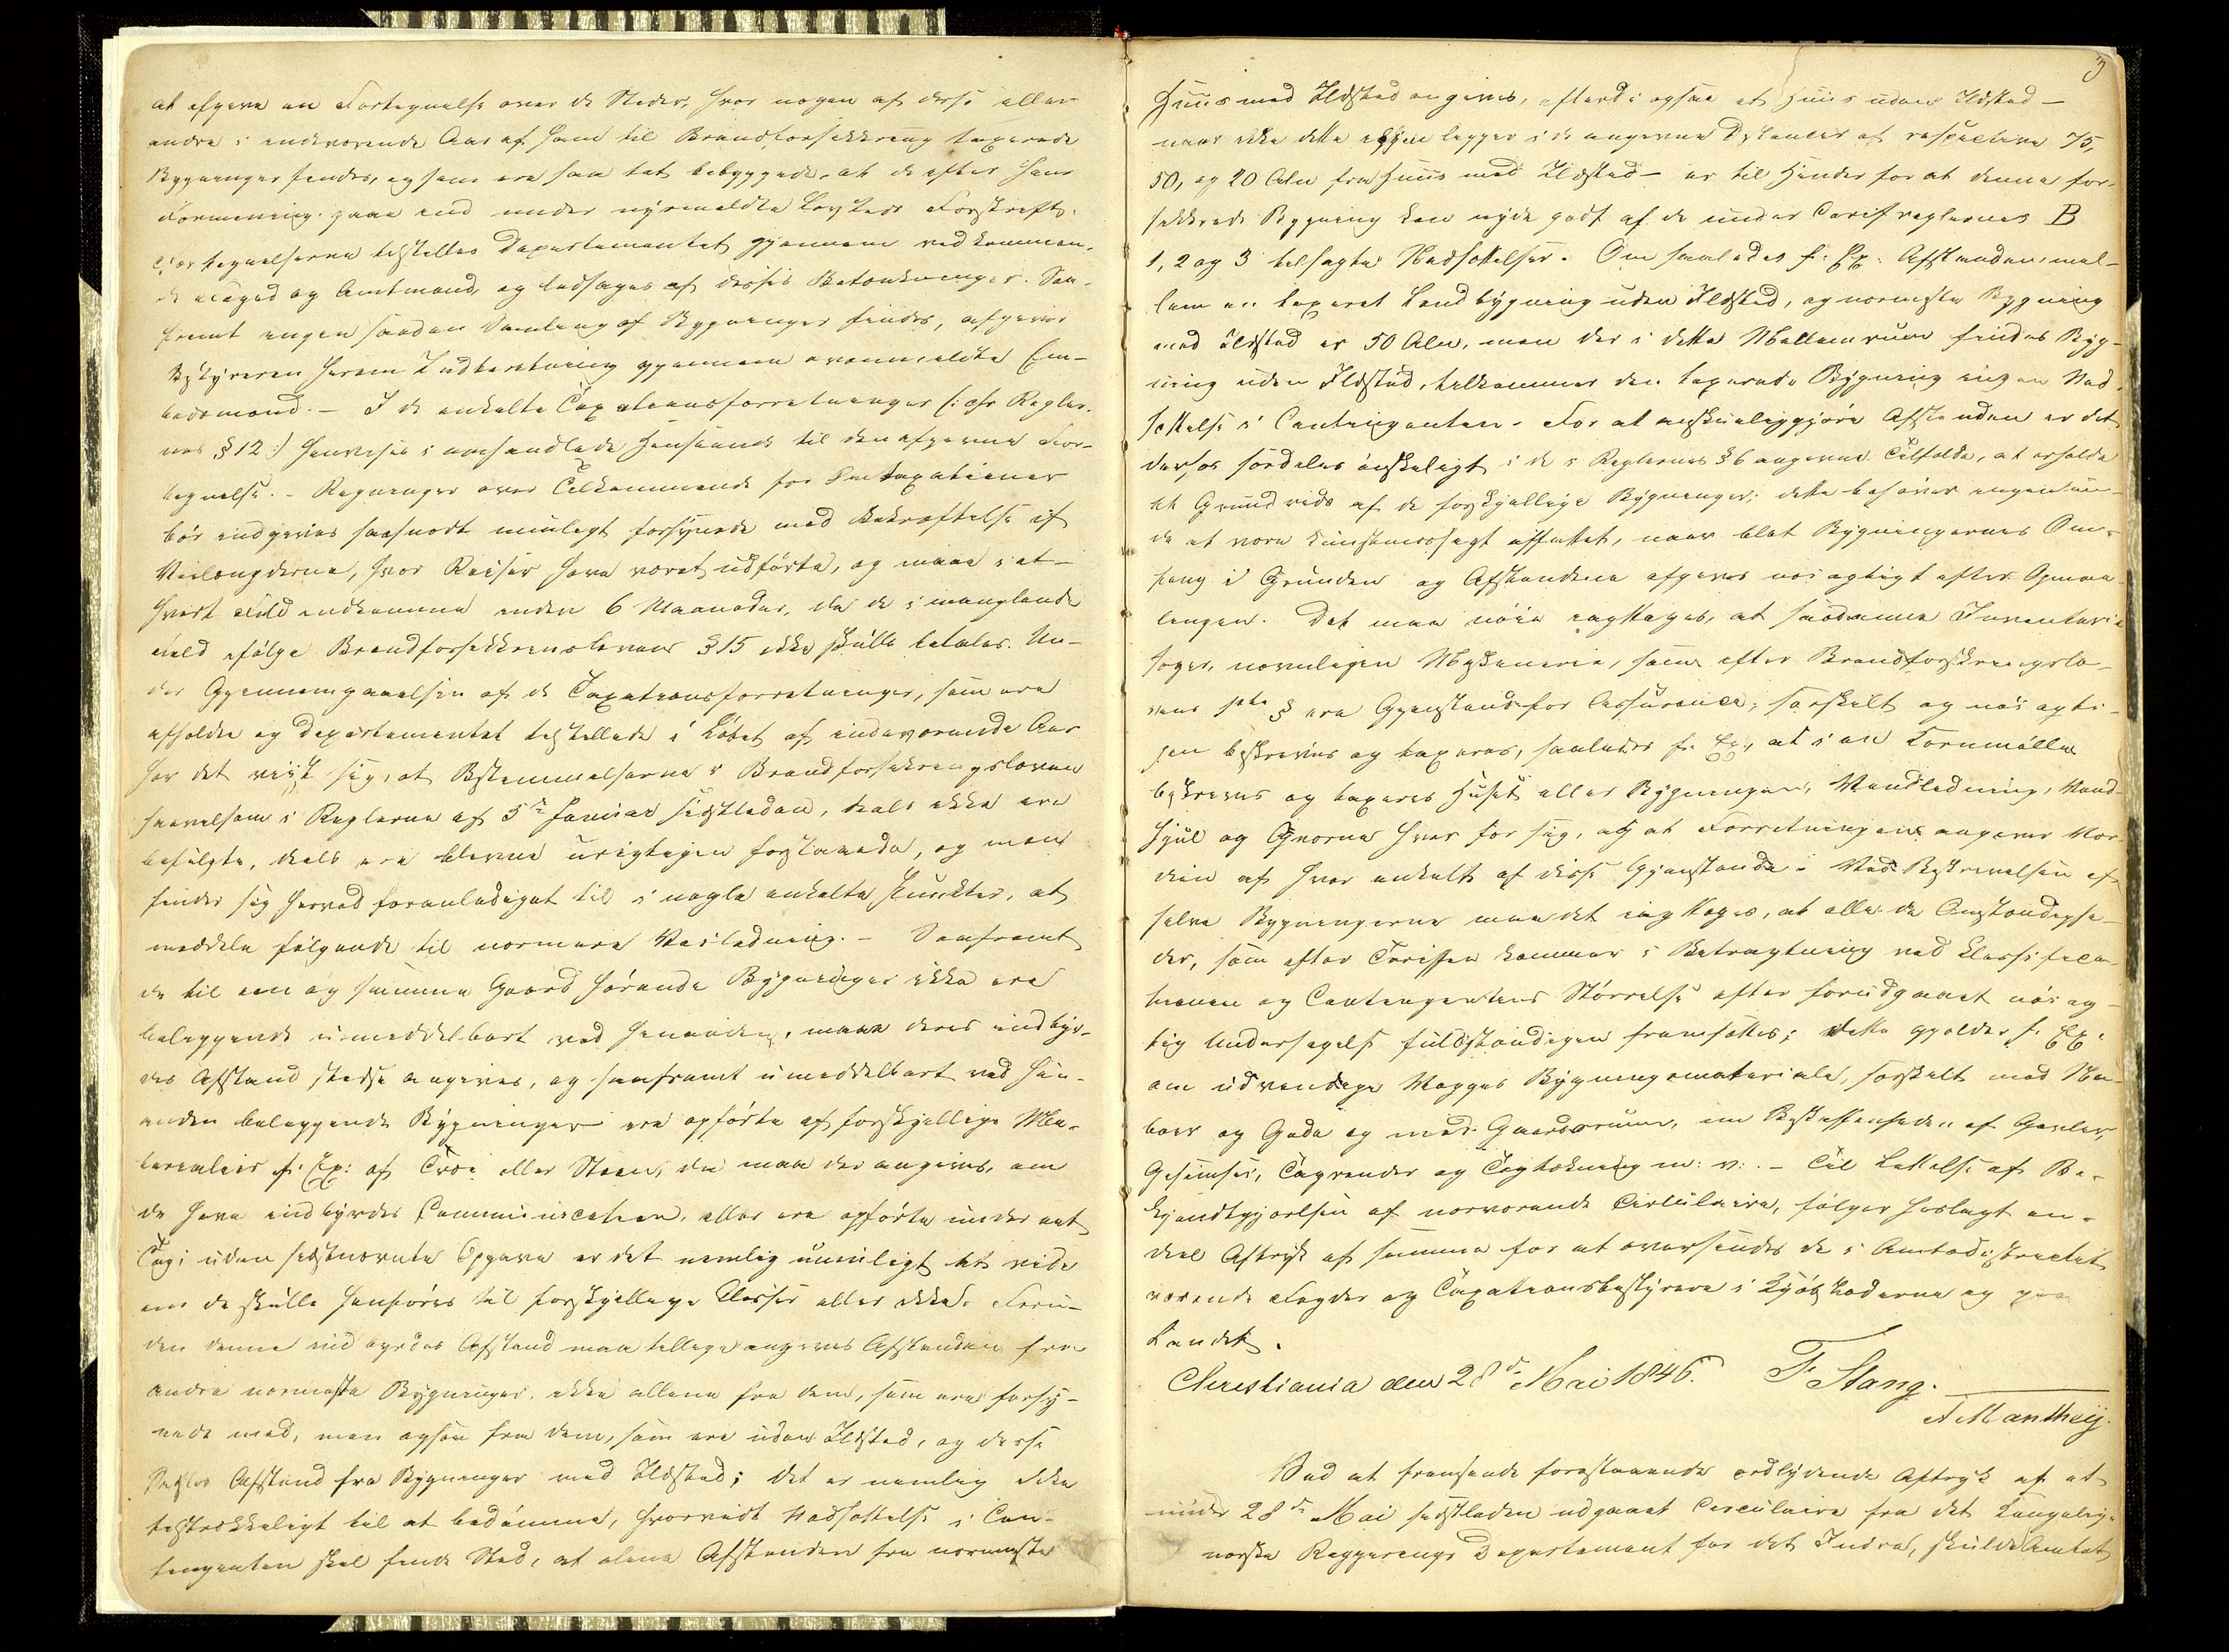 at afgive en Fortegnelse over de Steder, hvor nogen af disse eller
andre i indeværende Aar af ham til Brandforsikkring taxerede
Bygninger findes, og som ere saa tæt bebyggede, at de efter hans
Formening gaae ind under nysmeldte Lovsteds Forskrift.
Fortegnelserne tilstilles Departementet gjennem vedkommen-
de Foged og Amtmand, og ledsages af disses Betænkninger. Saa-
fremt ingen saadan Samling af Bygninger findes, afgiver
Bestyreren herom Indberetning gjennem ovenmeldte Em-
bedsmænd. – I de enkelte Taxationsforretninger (: cfr Regler-
nes § 12 :) henvises i omhandlede Henseende til den afgivne For-
tegnelse. – Regninger over Tilkommende for Taxationer
bør indgives saasnart muligt forsynede med Bekræftelse af
Veilængderne, hvor Reiser have været udførte, og maae i et-
hvert Fald indkomme inden 6 Maaneder, da de i manglende
Fald ifølge Brandforsikkrenslovens § 15 ikke skulle betales. Un-
der Gjennemgaaelsen af de Taxationsforretninger, som ere
afholdte og Departementet tilstillede i Løbet af indeværende Aar
har det viist sig, at Bestemmelserne i Brandforsikringsloven
saavelsom i Reglerne af 5te Januar sidstleden, deels ikke ere
befulgte, deels ere blevne urigtigen forstaaede, og man
finder sig herved foranlediget til i nogle enkelte Punkter, at
meddele følgende til nærmere Veiledning. – Saafremt
de til een og samme Gaard hørende Bygninger ikke ere
beliggende umiddelbart ved hinanden, maae deres indbyr-
des Afstand stedse angives, og saafremt umiddelbart ved hin-
anden beliggende Bygninger ere opførte af forskjellige Ma-
terialier f. Ex: af Træ eller Steen, da maa det angives, om
de have indbyrdes Communication, eller ere opførte under eet
Tag; uden sidstnævnte Opgave er det nemlig umuligt at vide
om de skulle henføres til forskjellige Classer eller ikke. Foru-
den denne indbyrdes Afstand maa tillige angives Afstanden fra
andre nærmeste Bygninger, ikke allene fra dem, som ere forsy-
nede med, men ogsaa fra dem, som ere uden Ildsted, og disse
Sidstes Afstand fra Bygninger med Ildsted; det er nemlig ikke
tilstrækkeligt til at bedømme, hvorvidt Nedsættelse i Con-
tingenten skal finde Sted, at alene Afstanden fra nærmeste
3
Huus med Ildsted angives, efterdi ogsaa et Huus uden Ildsted –
naar ikke dette ligger i de angivne Distancer af respective 75,
50, og 20 Alen fra Huus med Ildsted – er til Hinder for at denne for-
sikkrede Bygning kan nyde godt af de under Tarifreglernes B
1, 2 og 3 tilsagte Nedsættelser. Om saaledes f. Ex. Afstanden mel-
lem en taxeret Landbygning uden Ildsted, og nærmeste Bygning
med Ildsted er 50 Alen, men der i dette Mellemrum findes Byg-
ning uden Ildsted, tilkommer den taxerede Bygning ingen Ned-
sættelse i Contingenten. For at anskueliggjøre Afstanden er det
derfor særdeles ønskeligt i de i Reglernes § 6 angivne Tilfælde, at erholde
et Grundrids af de forskjellige Bygninger; dette behøver ingenlun-
de at være kunstmæssigt affattet, naar blot Bygningernes Om-
fang i Grunden og Afstandene afgives nøiagtigt efter Opmaa-
lingen. Det maa nøie iagttages, at saadanne Inventarie-
sager, navnligen Maskinerie, som efter Brandforsikringslo-
vens § ere Gjenstand for Assurance, særskilt og nøiagti-
gen beskrives og taxeres, saaledes f. Ex., at i en Kornmølle
beskrives og taxeres Huset eller Bygningen, Vandledning, Vand-
hjul og Qværne hver for sig, og at Forretningen angiver Vær-
dien af hver enkelt af disse Gjenstande. Ved Beskrivelsen af
selve Bygningerne maa det iagttages, at alle de Omstændighe-
der, som efter Tariffen kommer i Betragtning ved Classifica-
tionen og Contingentens Størrelse efter forudgaaet nøiag-
tig Undersøgelse fuldstændigen fremsættes; dette gjelder f. Ex.
om udvendige Vægges Bygningsmateriale, særskilt mod Na-
boer og Gade og mod Gaardsrum, om Beskaffenheden af Gavler,
Gesimser, Tagrender og Tagtækning m: v: . – Til Lettelse af Be-
kjendtgjørelsen af nærværende Circulaire, følger hoslagt en-
deel Aftryk af samme for at oversendes de i Amtsdistrictet
værende Fogder og Taxationsbestyrere i Kjøbstæderne og paa
Landet.
Christiania den 28de Mai 1846. F Stang.
A Manthey.
Ved at fremsende forestaaende ordlydende Aftryk af et
under 28de Mai sidstleden udgaaet Circulaire fra det Kongelige
norske Regjerings Departement for det Indre, skulde Amtet